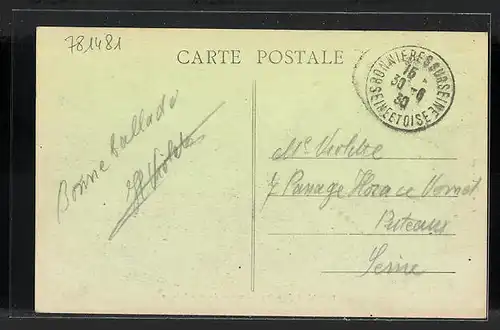 781481
CARTE POSTALE
BONNIERES SUR SEINE
15
30 - 6
30
SEINE ET OISE
Bonne ballade
Violette
Violette
7 Passage Horace Vernet
Puteaux
Seine